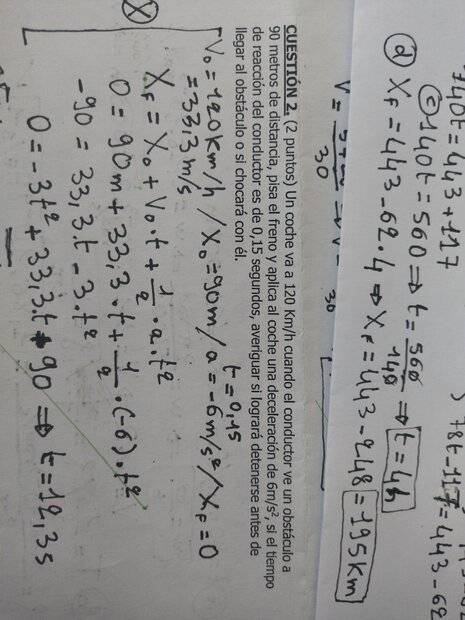 78t-117=443-62
140t=443+117
c 140t=560 ⇒ t=560/140 ⇒ t=4h
d X_F=443-62·4 ⇒ X_F=443-248=195Km
V=
30
30
CUESTIÓN 2. (2 puntos) Un coche va a 120 Km/h cuando el conductor ve un obstáculo a
90 metros de distancia, pisa el freno y aplica al coche una deceleración de 6m/s², si el tiempo
de reacción del conductor es de 0,15 segundos, averiguar si logrará detenerse antes de
llegar al obstáculo o si chocará con él.
t=0,15
V₀=120Km/h / X₀=90m/a=-6m/s²/X_F=0
=33,3m/s
X_F=X₀+V₀·t+1/2·a·t²
0=90m+33,3·t+1/2·(-6)·t²
-90=33,3t-3·t²
0=-3t²+33,3t+90 ⇒ t=12,3s